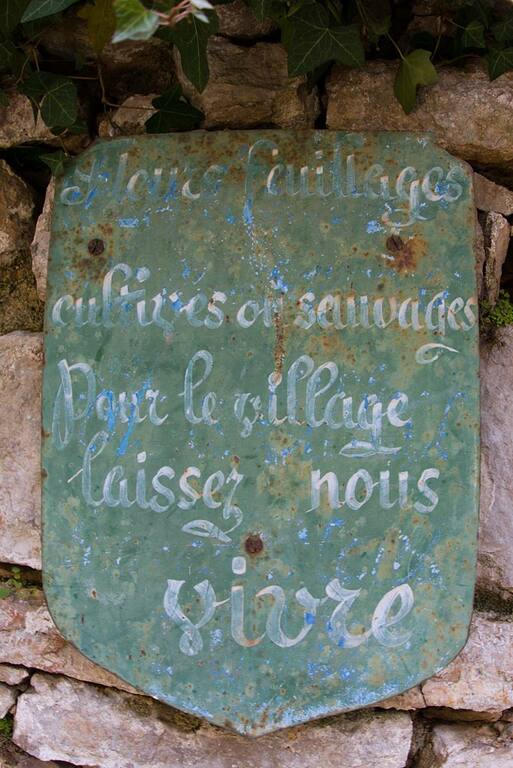 Fleurs feuillages
cultivées ou sauvages
Pour le village
laissez nous
vivre